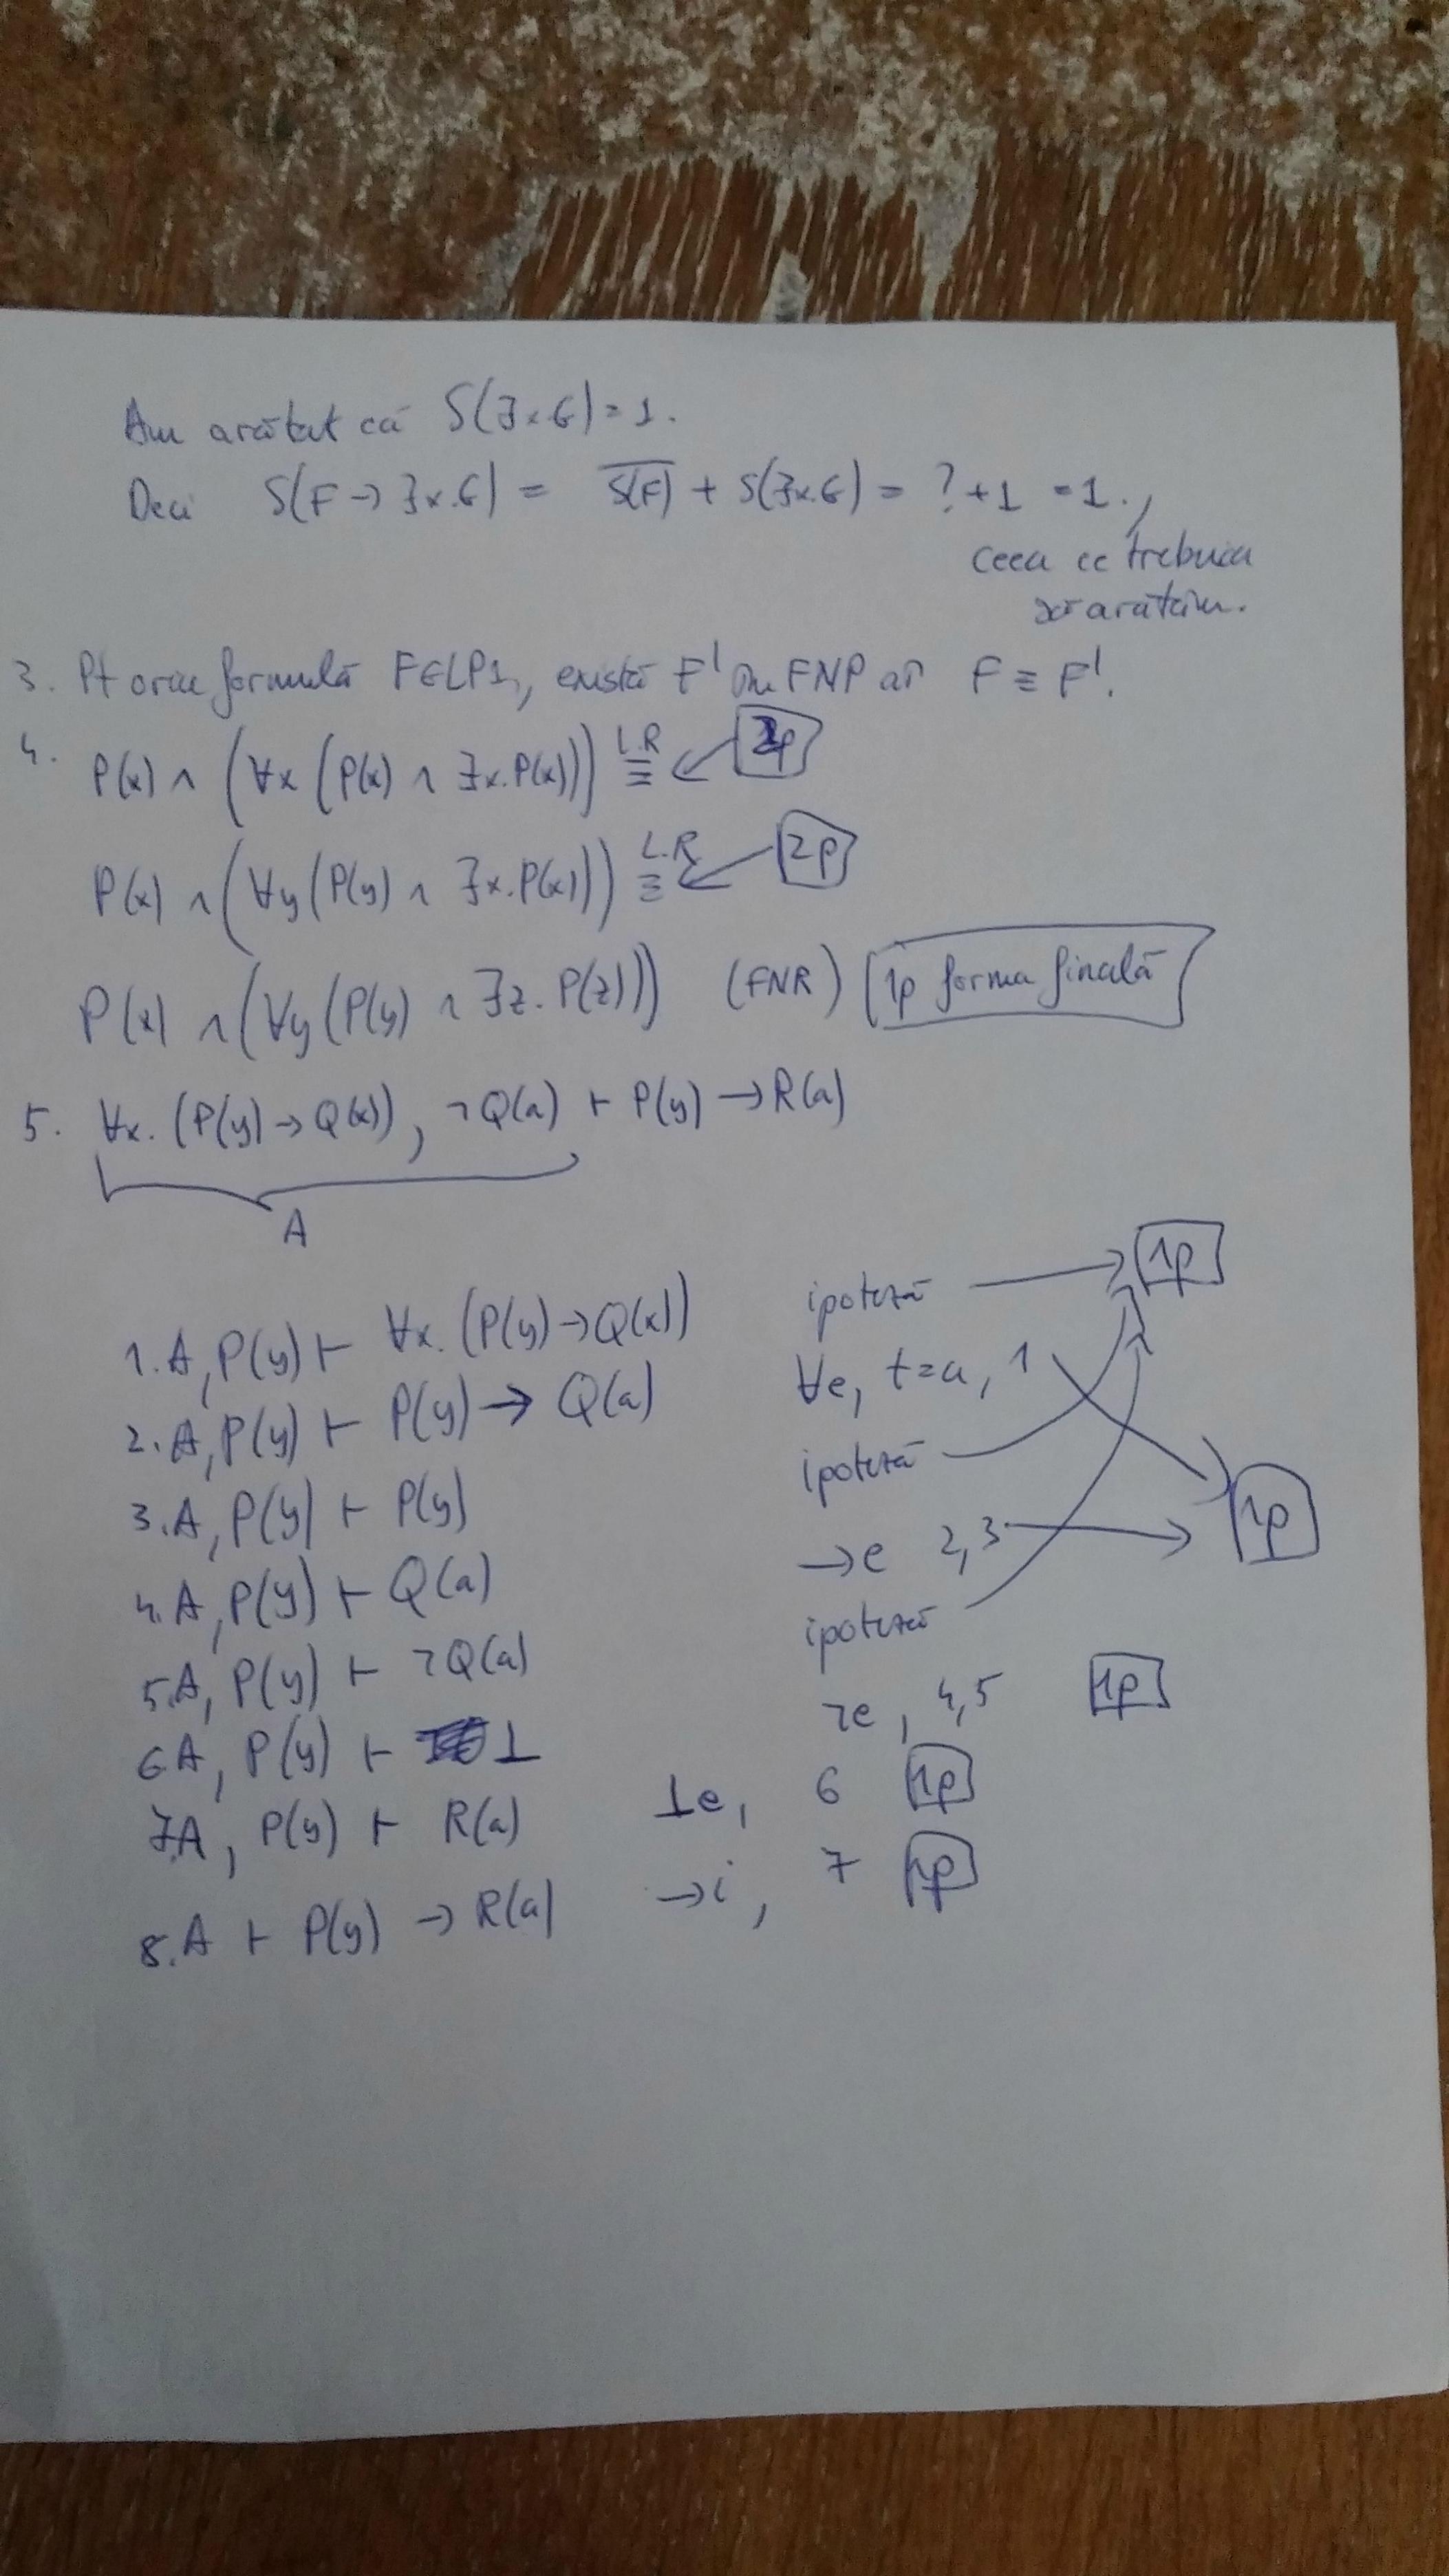 Am arătat că S(∃x.G)=1.
Deci S(F→∃x.G) = \overline{S(F)} + S(∃x.G) = ?+1 =1.,
ceea ce trebuia
să arătăm.
3. Pt orice formulă F∈LP1, există F' în FNP aî F ≡ F'.
4. P(x) ∧ (∀x (P(x) ∧ ∃x.P(x))) L.R ≡ 2p
P(x) ∧ (∀y (P(y) ∧ ∃x.P(x))) L.R ≡ 2p
P(x) ∧ (∀y (P(y) ∧ ∃z.P(z))) (FNR) 1p forma finală
5. ∀x.(P(y)→Q(x)), ¬Q(a) ⊢ P(y)→R(a)
A
1. A, P(y) ⊢ ∀x.(P(y)→Q(x)) ipoteză 1p
2. A, P(y) ⊢ P(y)→Q(a) ∀e, t=a, 1
3. A, P(y) ⊢ P(y) ipoteză
4. A, P(y) ⊢ Q(a) →e 2,3 1p
5. A, P(y) ⊢ ¬Q(a) ipoteză
6. A, P(y) ⊢ ⊥ ¬e, 4,5 1p
7. A, P(y) ⊢ R(a) ⊥e, 6 1p
8. A ⊢ P(y)→R(a) →i, 7 1p